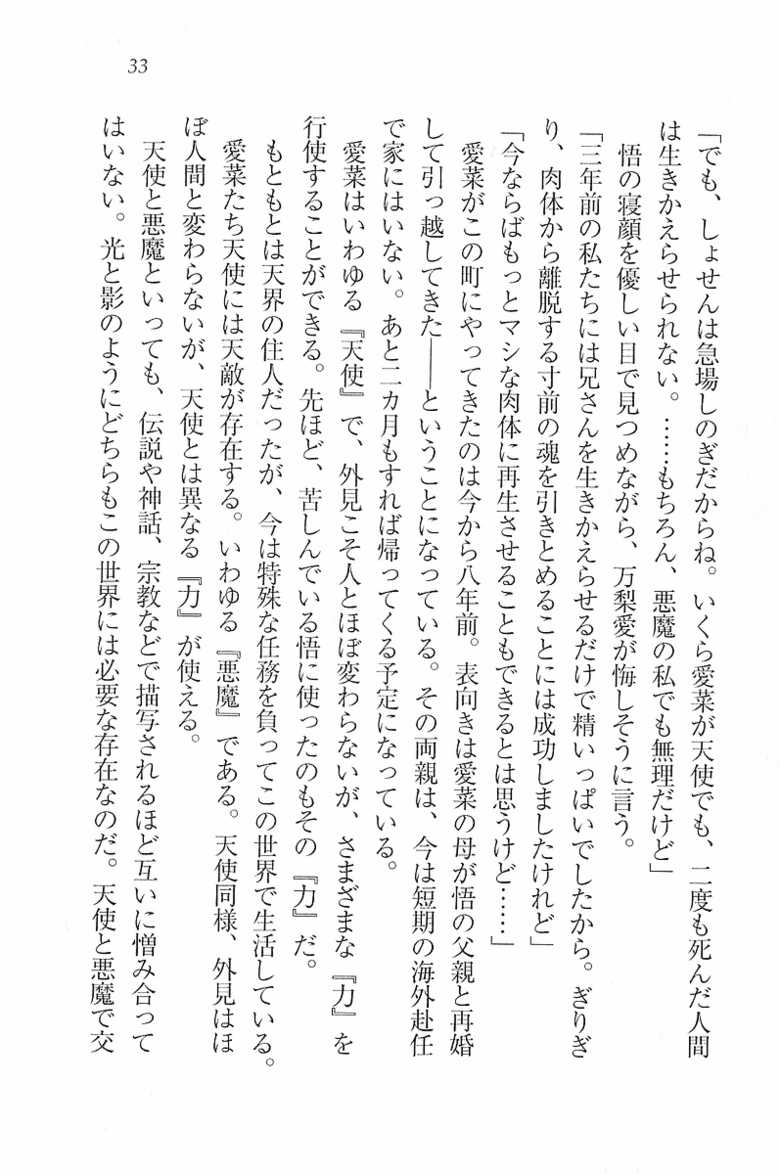 33
「でも、しょせんは急場しのぎだからね。いくら愛菜が天使でも、二度も死んだ人間
は生きかえらせられない。……もちろん、悪魔の私でも無理だけど」
悟の寝顔を優しい目で見つめながら、万梨愛が悔しそうに言う。
「三年前の私たちには兄さんを生きかえらせるだけで精いっぱいでしたから。ぎりぎ
り、肉体から離脱する寸前の魂を引きとめることには成功しましたけれど」
「今ならばもっとマシな肉体に再生させることもできるとは思うけど……」
愛菜がこの町にやってきたのは今から八年前。表向きは愛菜の母が悟の父親と再婚
して引っ越してきた――ということになっている。その両親は、今は短期の海外赴任
で家にはいない。あと二カ月もすれば帰ってくる予定になっている。
愛菜はいわゆる『天使』で、外見こそ人とほぼ変わらないが、さまざまな『力』を
行使することができる。先ほど、苦しんでいる悟に使ったのもその『力』だ。
もともとは天界の住人だったが、今は特殊な任務を負ってこの世界で生活している。
愛菜たち天使には天敵が存在する。いわゆる『悪魔』である。天使同様、外見はほ
ぼ人間と変わらないが、天使とは異なる『力』が使える。
天使と悪魔といっても、伝説や神話、宗教などで描写されるほど互いに憎み合って
はいない。光と影のようにどちらもこの世界には必要な存在なのだ。天使と悪魔で交